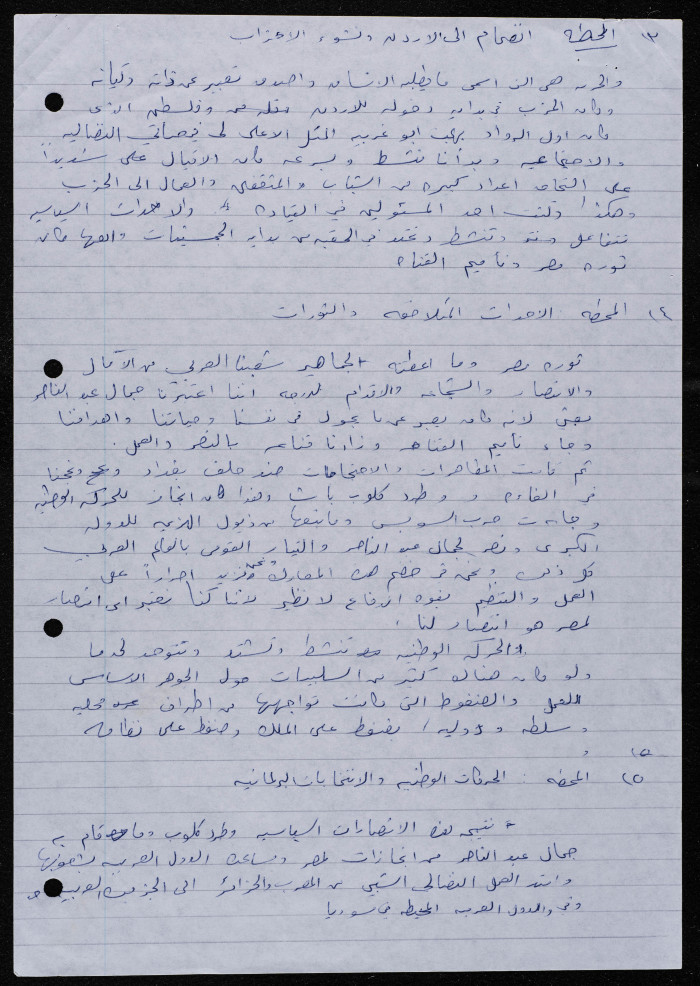 ٣) المحطة انضمام الى الاردن ونشوء الاحزاب
والحرية هي التي اسمى ما يطلبه الانسان واصدق تعبير عن ذاته وكيانه
وكان الحزب في بدايه دخوله للاردن من فلسطين الذي
كان اول الرواد بهجت ابو غربيه المثل الاعلى لي في حياتي النضاليه
والاجتماعيه وبدأنا ننشط وبسرعه كان الاقبال على شديداً
على التحاق اعداد كبيره من الشباب والمثقفين والعمال الى الحزب
وهكذا وكنت احد المسئولين في القيادة والاحداث السياسيه
تتفاعل وتنشط وتمتد في الحقبه من بدايه الخمسينات واهمها كان
ثوره مصر وتاميم القناه
٤) المحطه الاحداث المتلاحقه والثورات
ثوره مصر وما اعطته لجماهير شعبنا العربي من الآمال
والانتصار والشجاعه والاقدام لدرجه اننا اعتبرنا جمال عبد الناصر
لانه كان يعبر عن ما يجول في نفسنا وحياتنا واهدافنا
وجاء تاميم القناه وزادنا قناعه بالنصر والعمل.
ثم قامت المظاهرات والاحتجاجات ضد حلف بغداد ونجحنا
في الغاءه و وطرد كلوب باشا وهذا كان انجاز للحركه الوطنيه
وجاءت حرب السويس وما تبعها من ذيول الهزيمه للدوله
الكبرى ونصر لجمال عبد الناصر والتيار القومي بالعالم العربي
كل ذلك ونحن في خضم هذه المعارك ونحن نزيد اصراراً على
العمل والتنظيم بقوه اندفاع لا نظير لاننا كنا نعتبر اي انتصار
لمصر هو انتصار لنا.
الحركه الوطنيه تنشط وتشتد وتتوحد لحد ما
ولو كان هنالك كثير من السلبيات حول الجوهر الاساسي
للعمل والضغوط التي كانت تواجهها من اطراف محليه
وسلطه ودوليه / بضغوط على الملك وضغط على نظامه
٥)
و
٥) المحطه : الحركات الوطنيه والانتخابات البرلمانيه
نتيجه لهذه الانتصارات السياسيه وطرد كلوب وما قام به
جمال عبد الناصر من انجازات لمصر ومساعدة الدول العربيه وشعوبها
وامتد العمل النضالي الشعبي من المغرب والجزائر الى الجزيره العربيه
وفي والدول العربيه المحيطه في سوريا